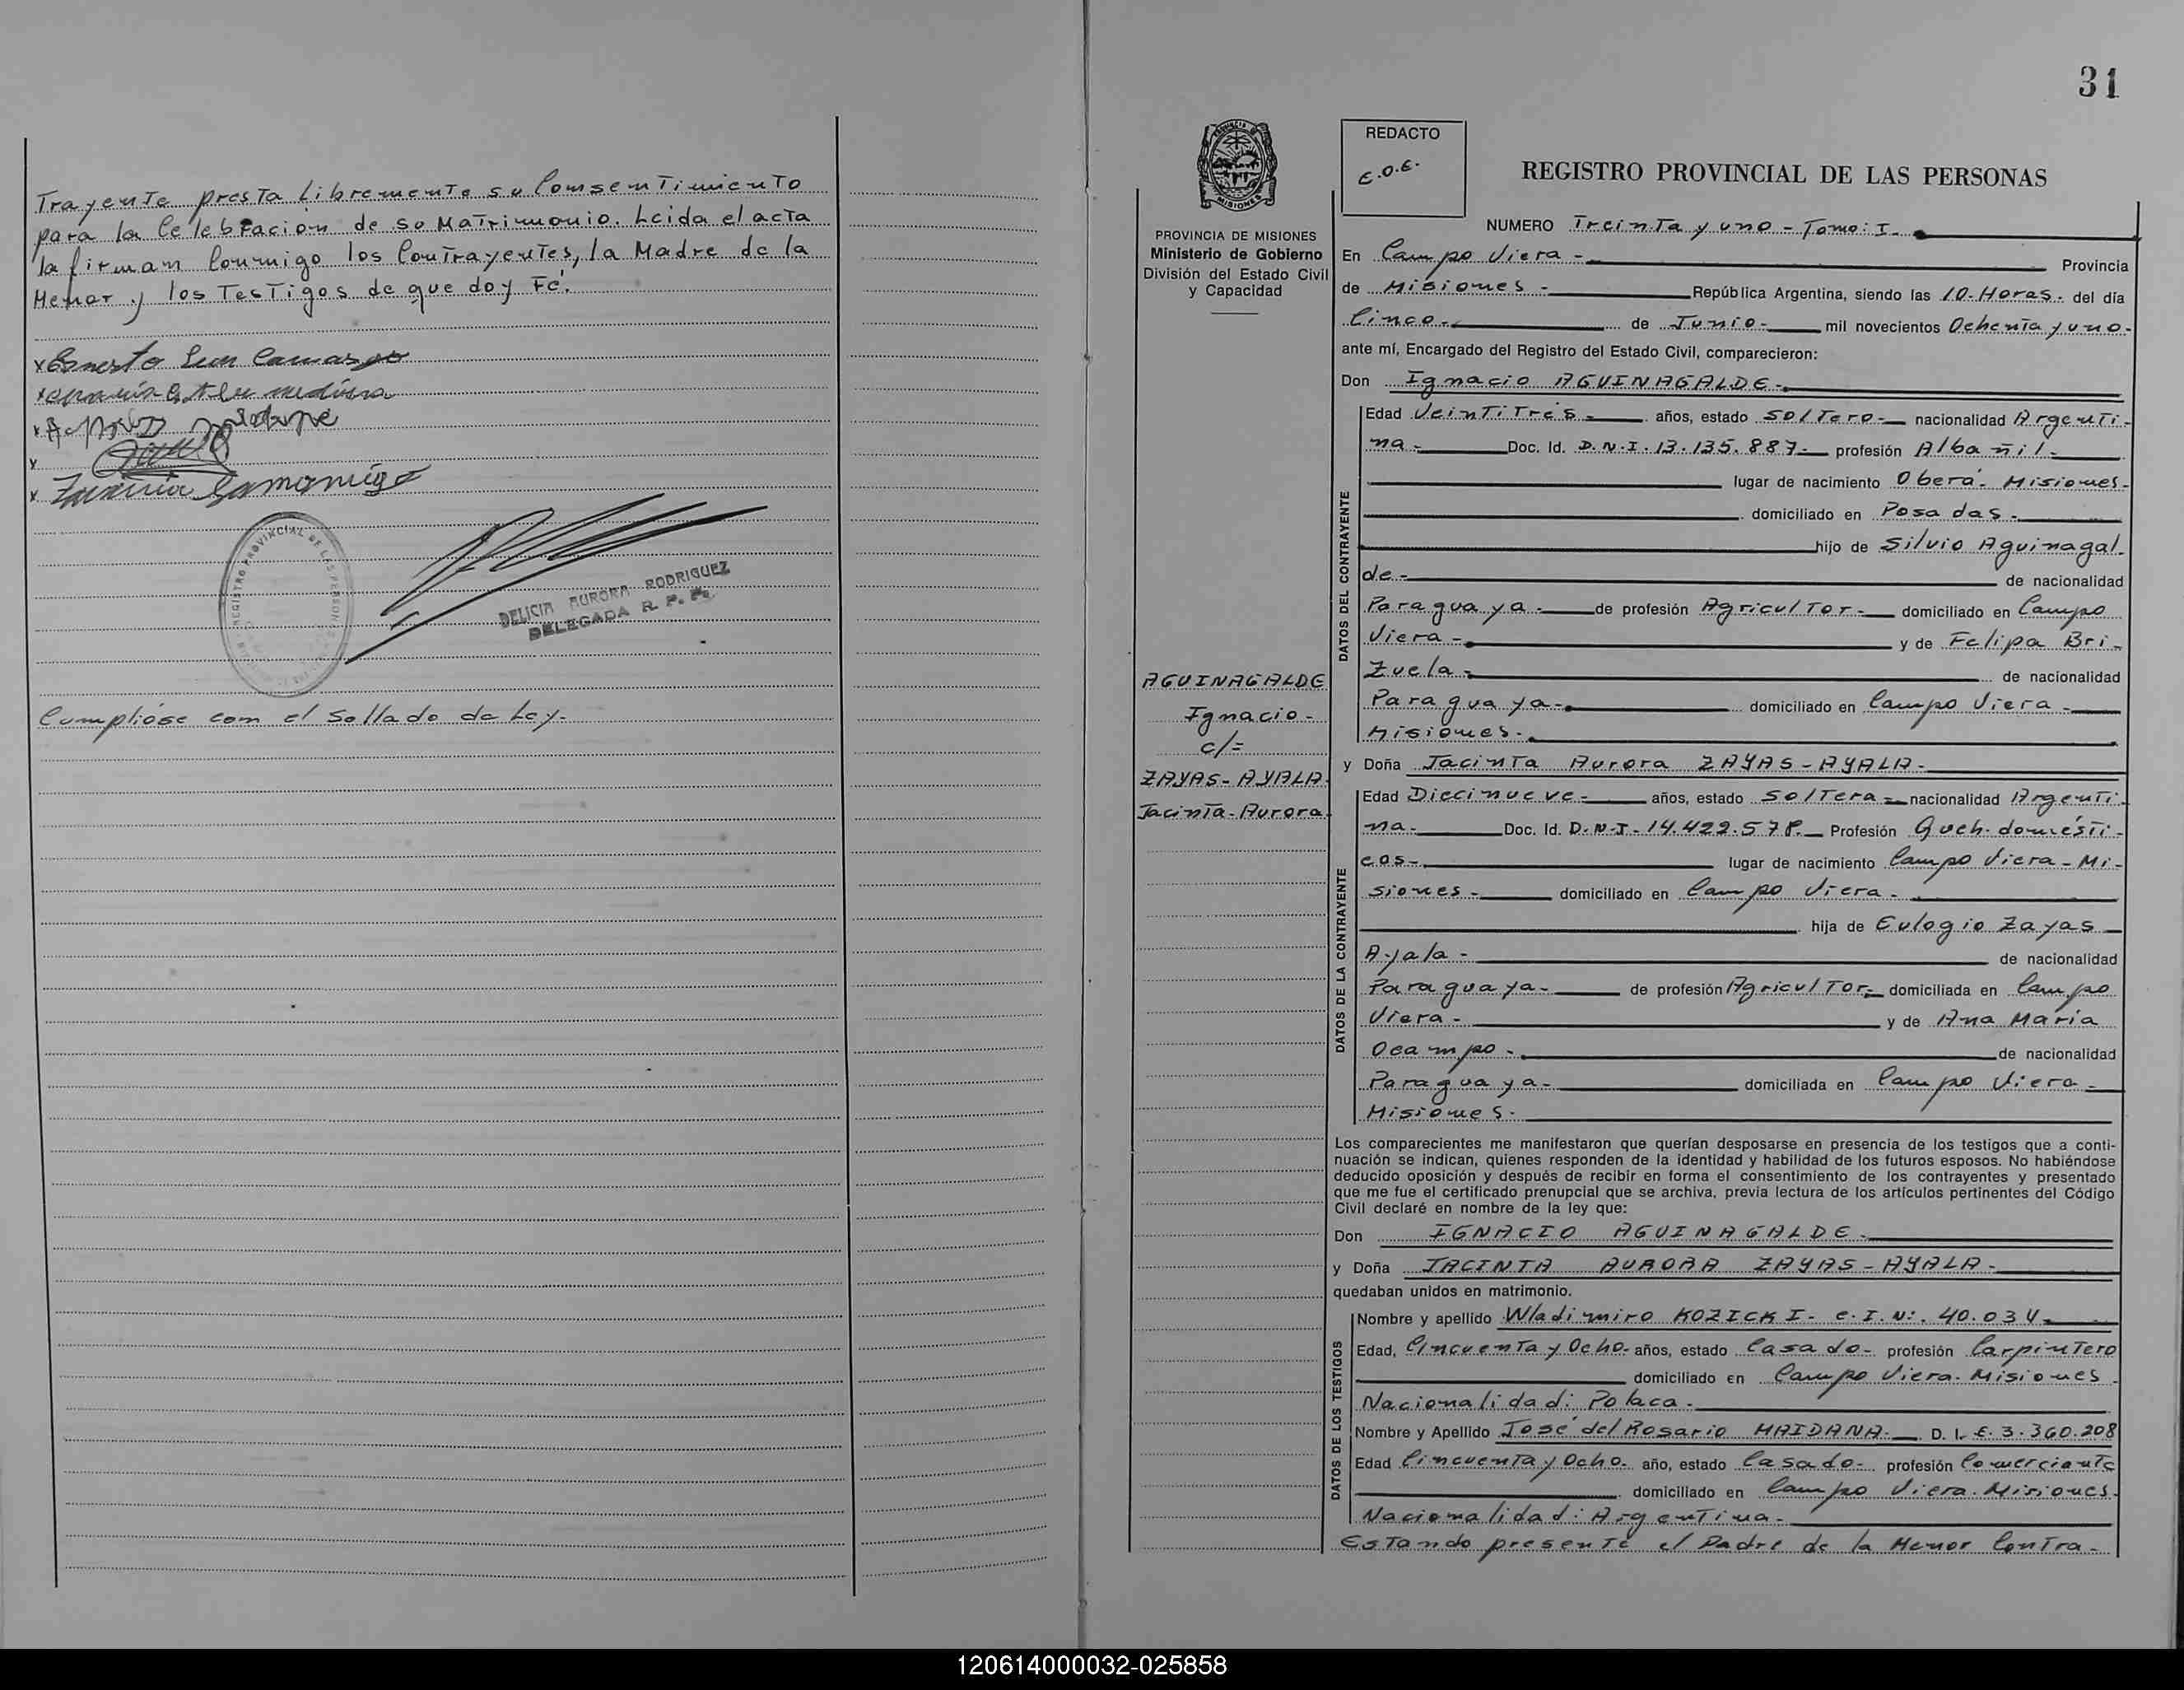 Trayente presta Libremente su Consentimiento
para la Celebración de su Matrimonio. Leida el acta
la firman Conmigo los Contrayentes, la Madre de la
Menor y los Testigos de que doy Fé.
x Ernesto Camargo
x medina
x
x
x
REGISTRO PROVINCIAL DE LAS PERSONAS
DELICIA AURORA RODRIGUEZ
DELEGADA R. P. P.
Cumplióse con el Sellado de Ley.-
31
REDACTO
E.O.E.
REGISTRO PROVINCIAL DE LAS PERSONAS
MISIONES
PROVINCIA DE MISIONES
Ministerio de Gobierno
División del Estado Civil
y Capacidad
AGUINAGALDE
Ignacio-
c/=
ZAYAS-AYALA-
Jacinta-Aurora.
NUMERO Treinta y uno - Tomo: I.-
En Campo Viera - Provincia
de Misiones - República Argentina, siendo las 10-Horas- del día
Cinco- de Junio- mil novecientos Ochenta y uno-
ante mí, Encargado del Registro del Estado Civil, comparecieron:
Don Ignacio AGUINAGALDE-
DATOS DEL CONTRAYENTE
Edad Veintitrés- años, estado Soltero- nacionalidad Argenti-
na- Doc. Id. D.N.I. 13.135.887- profesión Albañil-
lugar de nacimiento Oberá- Misiones-
domiciliado en Posadas-
hijo de Silvio Aguinagal-
de- de nacionalidad
Paraguaya- de profesión Agricultor- domiciliado en Campo
Viera- y de Felipa Bri-
zuela- de nacionalidad
Paraguaya- domiciliado en Campo Viera-
Misiones-
y Doña Jacinta Aurora ZAYAS-AYALA-
DATOS DE LA CONTRAYENTE
Edad Diecinueve- años, estado Soltera- nacionalidad Argenti-
na- Doc. Id. D.N.I. 14.422.578- Profesión Queh. domésti-
cos- lugar de nacimiento Campo Viera-Mi-
siones- domiciliado en Campo Viera-
hija de Eulogio Zayas
Ayala- de nacionalidad
Paraguaya- de profesión Agricultor- domiciliada en Campo
Viera- y de Ana María
Ocampo- de nacionalidad
Paraguaya- domiciliada en Campo Viera-
Misiones-
Los comparecientes me manifestaron que querían desposarse en presencia de los testigos que a conti-
nuación se indican, quienes responden de la identidad y habilidad de los futuros esposos. No habiéndose
deducido oposición y después de recibir en forma el consentimiento de los contrayentes y presentado
que me fue el certificado prenupcial que se archiva, previa lectura de los artículos pertinentes del Código
Civil declaré en nombre de la ley que:
Don IGNACIO AGUINAGALDE-
y Doña JACINTA AURORA ZAYAS-AYALA-
quedaban unidos en matrimonio.
DATOS DE LOS TESTIGOS
Nombre y apellido Wladimiro KOZICKI- C.I.N: 40.034-
Edad, Cincuenta y Ocho- años, estado Casado- profesión Carpintero
domiciliado en Campo Viera-Misiones-
Nacionalidad: Polaca-
Nombre y Apellido José del Rosario MAIDANA- D. I. E. 3.360.208
Edad Cincuenta y Ocho- año, estado Casado- profesión Comerciante
domiciliado en Campo Viera-Misiones-
Nacionalidad: Argentina-
Estando presente el Padre de la Menor Contra-
120614000032-025858